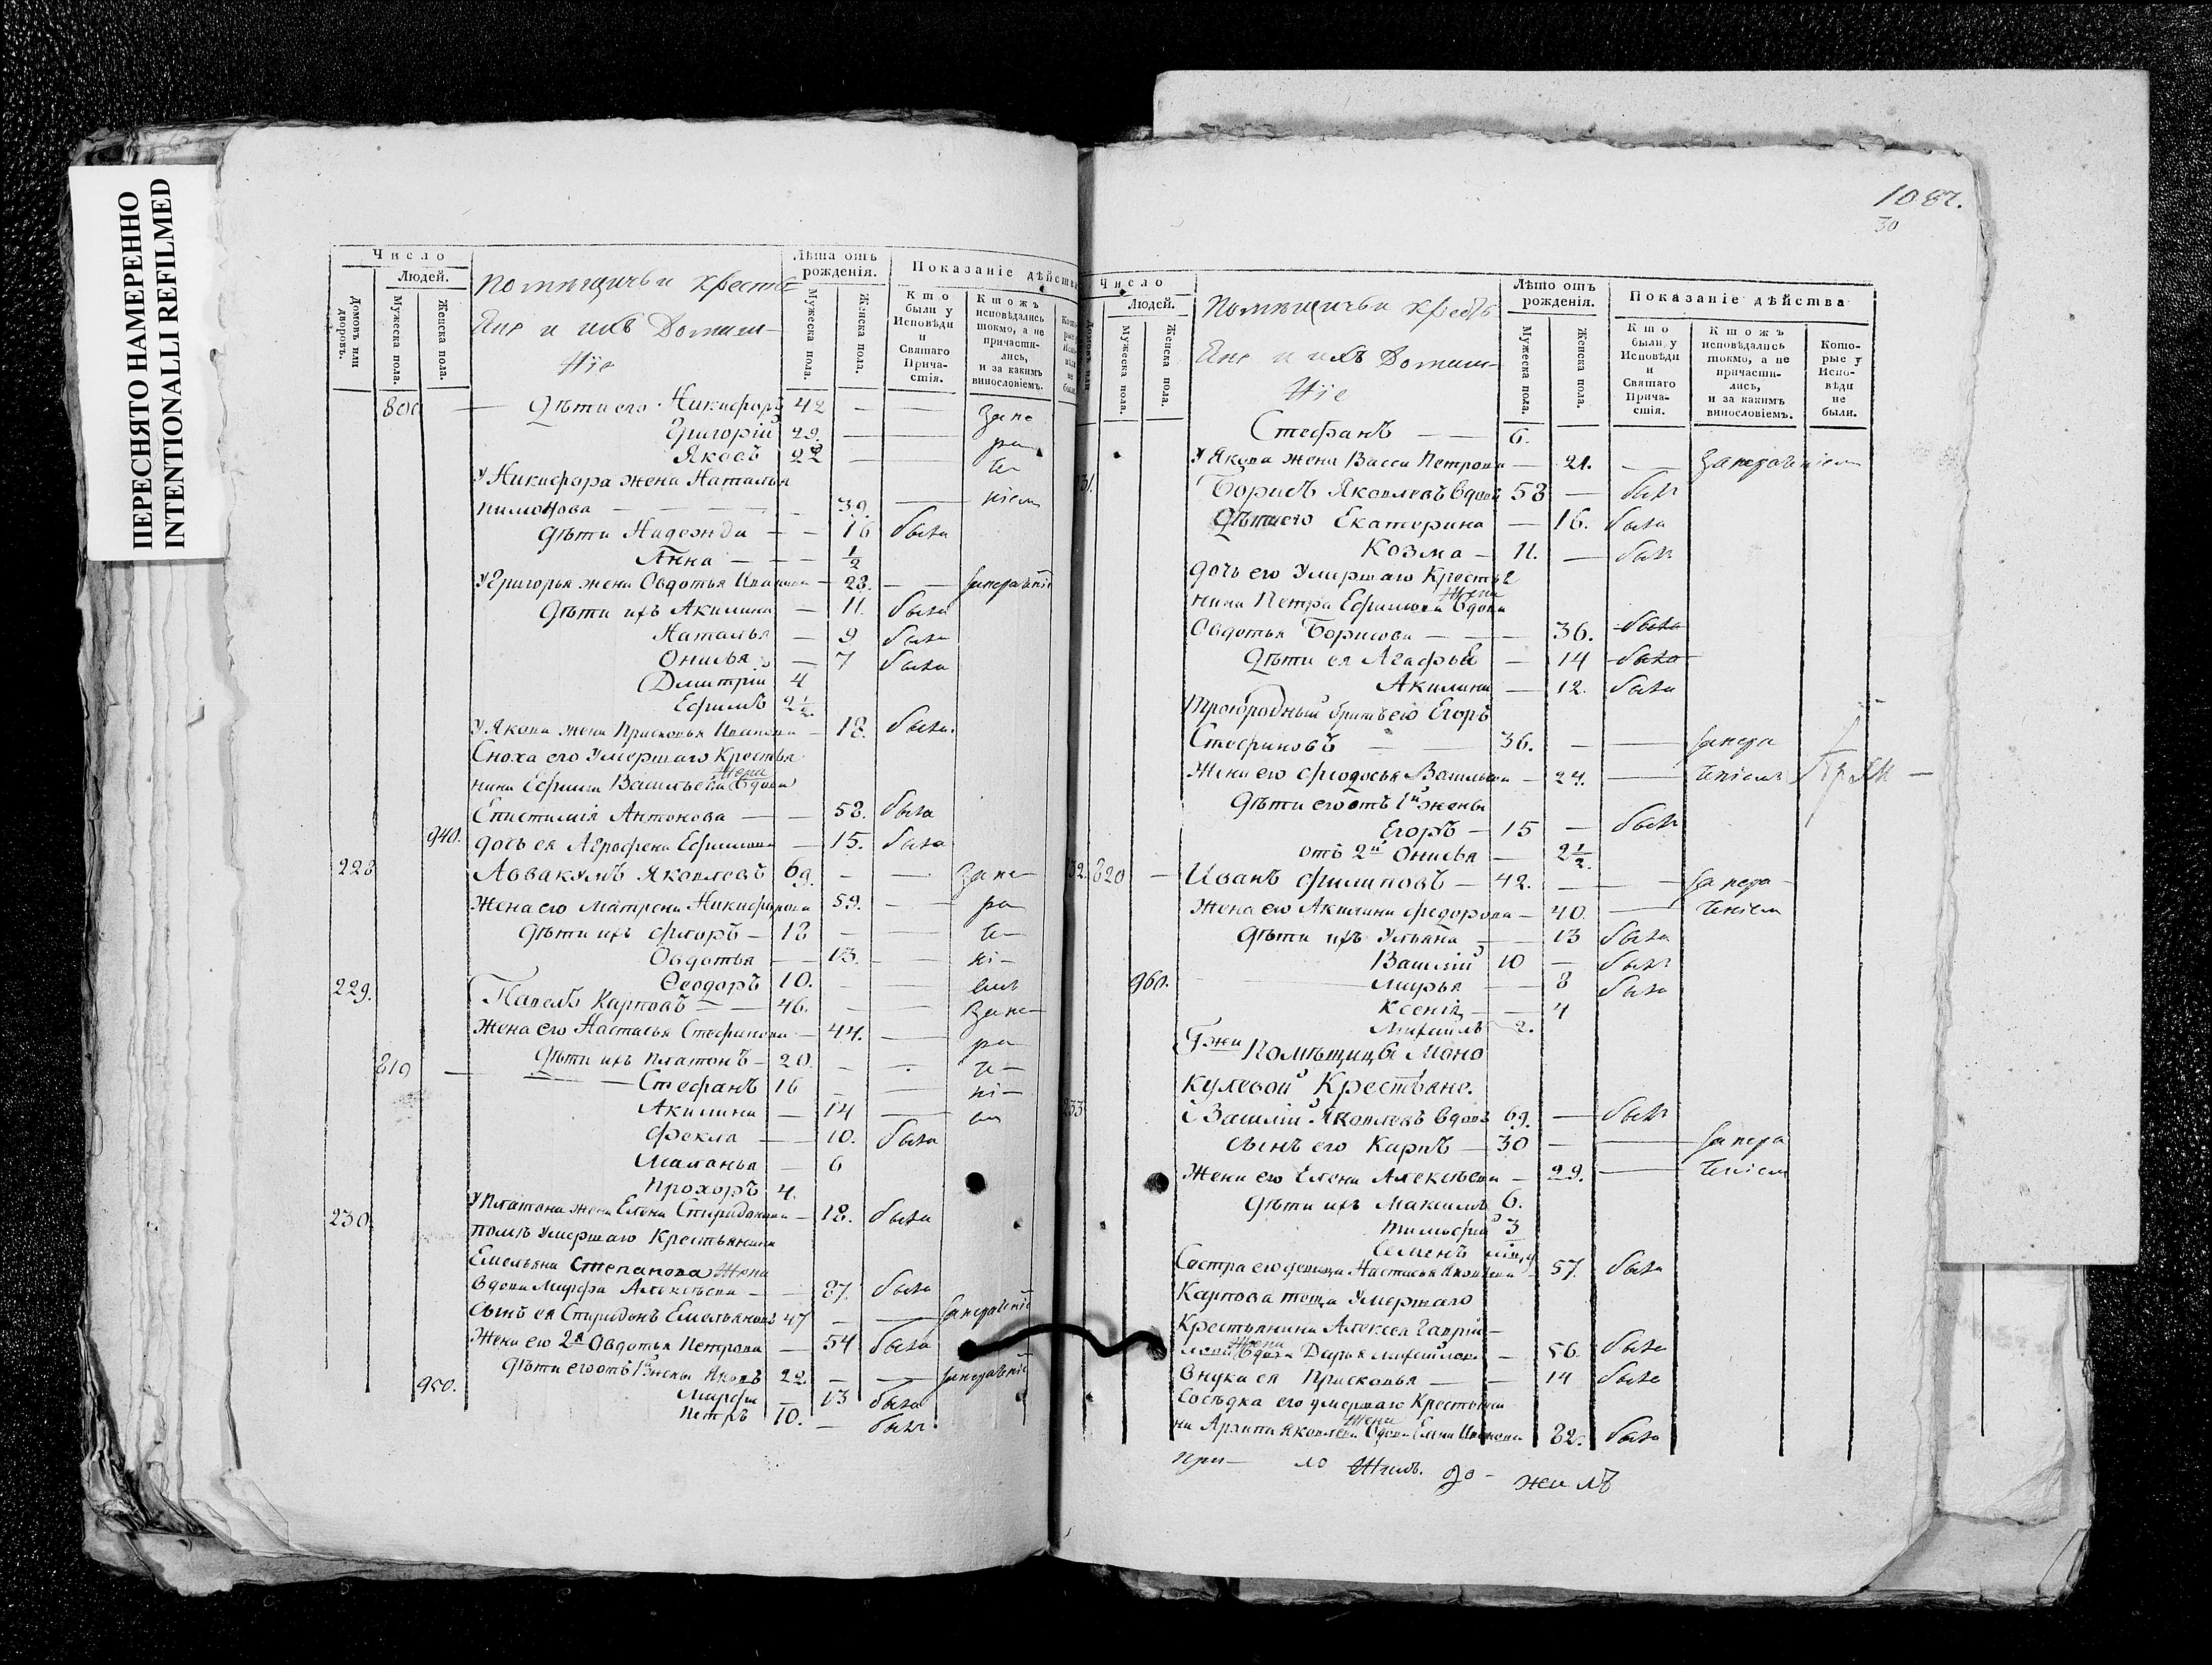 ПЕРЕСНЯТО НАМЕРЕННО
INTENTIONALLI REFILMED
Число
Людей.
Домовъ или дворовъ.
Мужеска пола.
Женска пола.
Помѣщичьи кресть
яне и ихъ Домаш-
нїе
Лѣта отъ рожденія.
Мужеска пола.
Женска пола.
Показаніе дѣйства
Кто были у Исповѣди и Святаго Причастія.
Ктожъ исповѣдались токмо, а не причастились, и за какимъ винословіемъ.
800 Дѣти его Никифоръ 42 — — За не
Григорій 29. — — ра
Яковъ 22 — — че
У Никифора жена Наталья
Пимонова — 39. — нїем
дѣти Надежда — 16 была
Анна — ½
У Григорья жена Овдотья Иванова — 28. — за нераченїе
дѣти ихъ Акилина — 11. была
Наталья — 9 была
Онисья — 7 была
Дмитрій 4
Ефимъ 2½
У Якова жена Прасковья Иванова — 18. была.
Сноха его умершаго Крестья
нина Ефима Васильева жена вдова
Епистимія Антонова — 58. была
940. дочь ея Агрофена Ефимова — 15. была
228 Аввакумъ Яковлевъ 69. — — За не
Жена его Матрена Никифорова 59. — ра
дѣти ихъ Флоръ — 18 — — че
Овдотья — 13. — нї
Ѳеодоръ 10. — — емъ
229. Павелъ Карповъ — 46. — — За не
Жена его Настасья Стефанова — 44. — ра
810 — Дѣти ихъ Платонъ — 20. — че
Стефанъ 16 — — нї
Акилина — 14 — ем
Фекла — 10. была
Маланья — 6
Прохоръ 4.
У Платона жена Елена Спиридонова — 18. была
230. Помѣ умершаго Крестьянина
Емельяна Степанова жена
вдова Марфа Алексѣева — 87. была
сынъ ея Спиридонъ Емельяновъ 47 — — за нераченїе
Жена его 2я Овдотья Петрова — 54 была
дѣти его отъ 1й жены Яковъ 22. — — за нераченїе
950. Марфа — 13 была
Петръ 10. — былъ.
1087.
30
Число
Людей.
Мужеска пола.
Женска пола.
Помѣщичьи кресть
яне и ихъ Домаш-
нїе
Лѣто отъ рожденія.
Мужеска пола.
Женска пола.
Показаніе дѣйства
Кто были у Исповѣди и Святаго Причастія.
Ктожъ исповѣдались токмо, а не причастились, и за какимъ винословіемъ.
Которые у Исповѣди не были.
Стефанъ — 6.
У Якова жена Васса Петрова — 21. — За нераченїем
31. Борисъ Яковлевъ вдовъ 58 — былъ
Дѣти его Екатерина — 16. была
Козма — 11. — былъ
дочь его умершаго Крестья
нина Петра Ефимова жена вдова
Овдотья Борисова — 36. была
Дѣти ея Агафья — 14 была
Акилина — 12. была
Троюродный братъ его Егоръ
Стефановъ — 36. — — за нера
Жена его Феодосья Васильева — 24. — ченїемъ
дѣти его отъ 1й жены
Егоръ — 15 — былъ
отъ 2й Онисья — 2½
32. 820 — Иванъ Филиповъ — 42. — — за нера
Жена его Акилина Федорова — 40. — ченїем
дѣти ихъ Ульяна — 13 была
Василій 10 — былъ
960. Марья — 8 была
Ксенія — 4
Михаилъ 2.
Гжи Помѣщицы Моно
кулевой Крестьяне.
233 Василій Яковлевъ вдовъ 69. — былъ
сынъ его Карпъ — 30 — — за нера
Жена его Елена Алексѣева — 29. — ченїем
дѣти ихъ Максимъ 6.
Тимофей 3
Семенъ
Сестра его девица Настасья Яковлева 57. была
Карпова теща умершаго
Крестьянина Алексея Гаври-
лова жена вдова Дарья Михайлова — 56. была
Внука ея Прасковья — 14 была
Соседка его умершаго Крестьяни
на Архипа Яковлева жена вдова Елена Иванова 82. была
при- ло Жилъ. до- жилъ